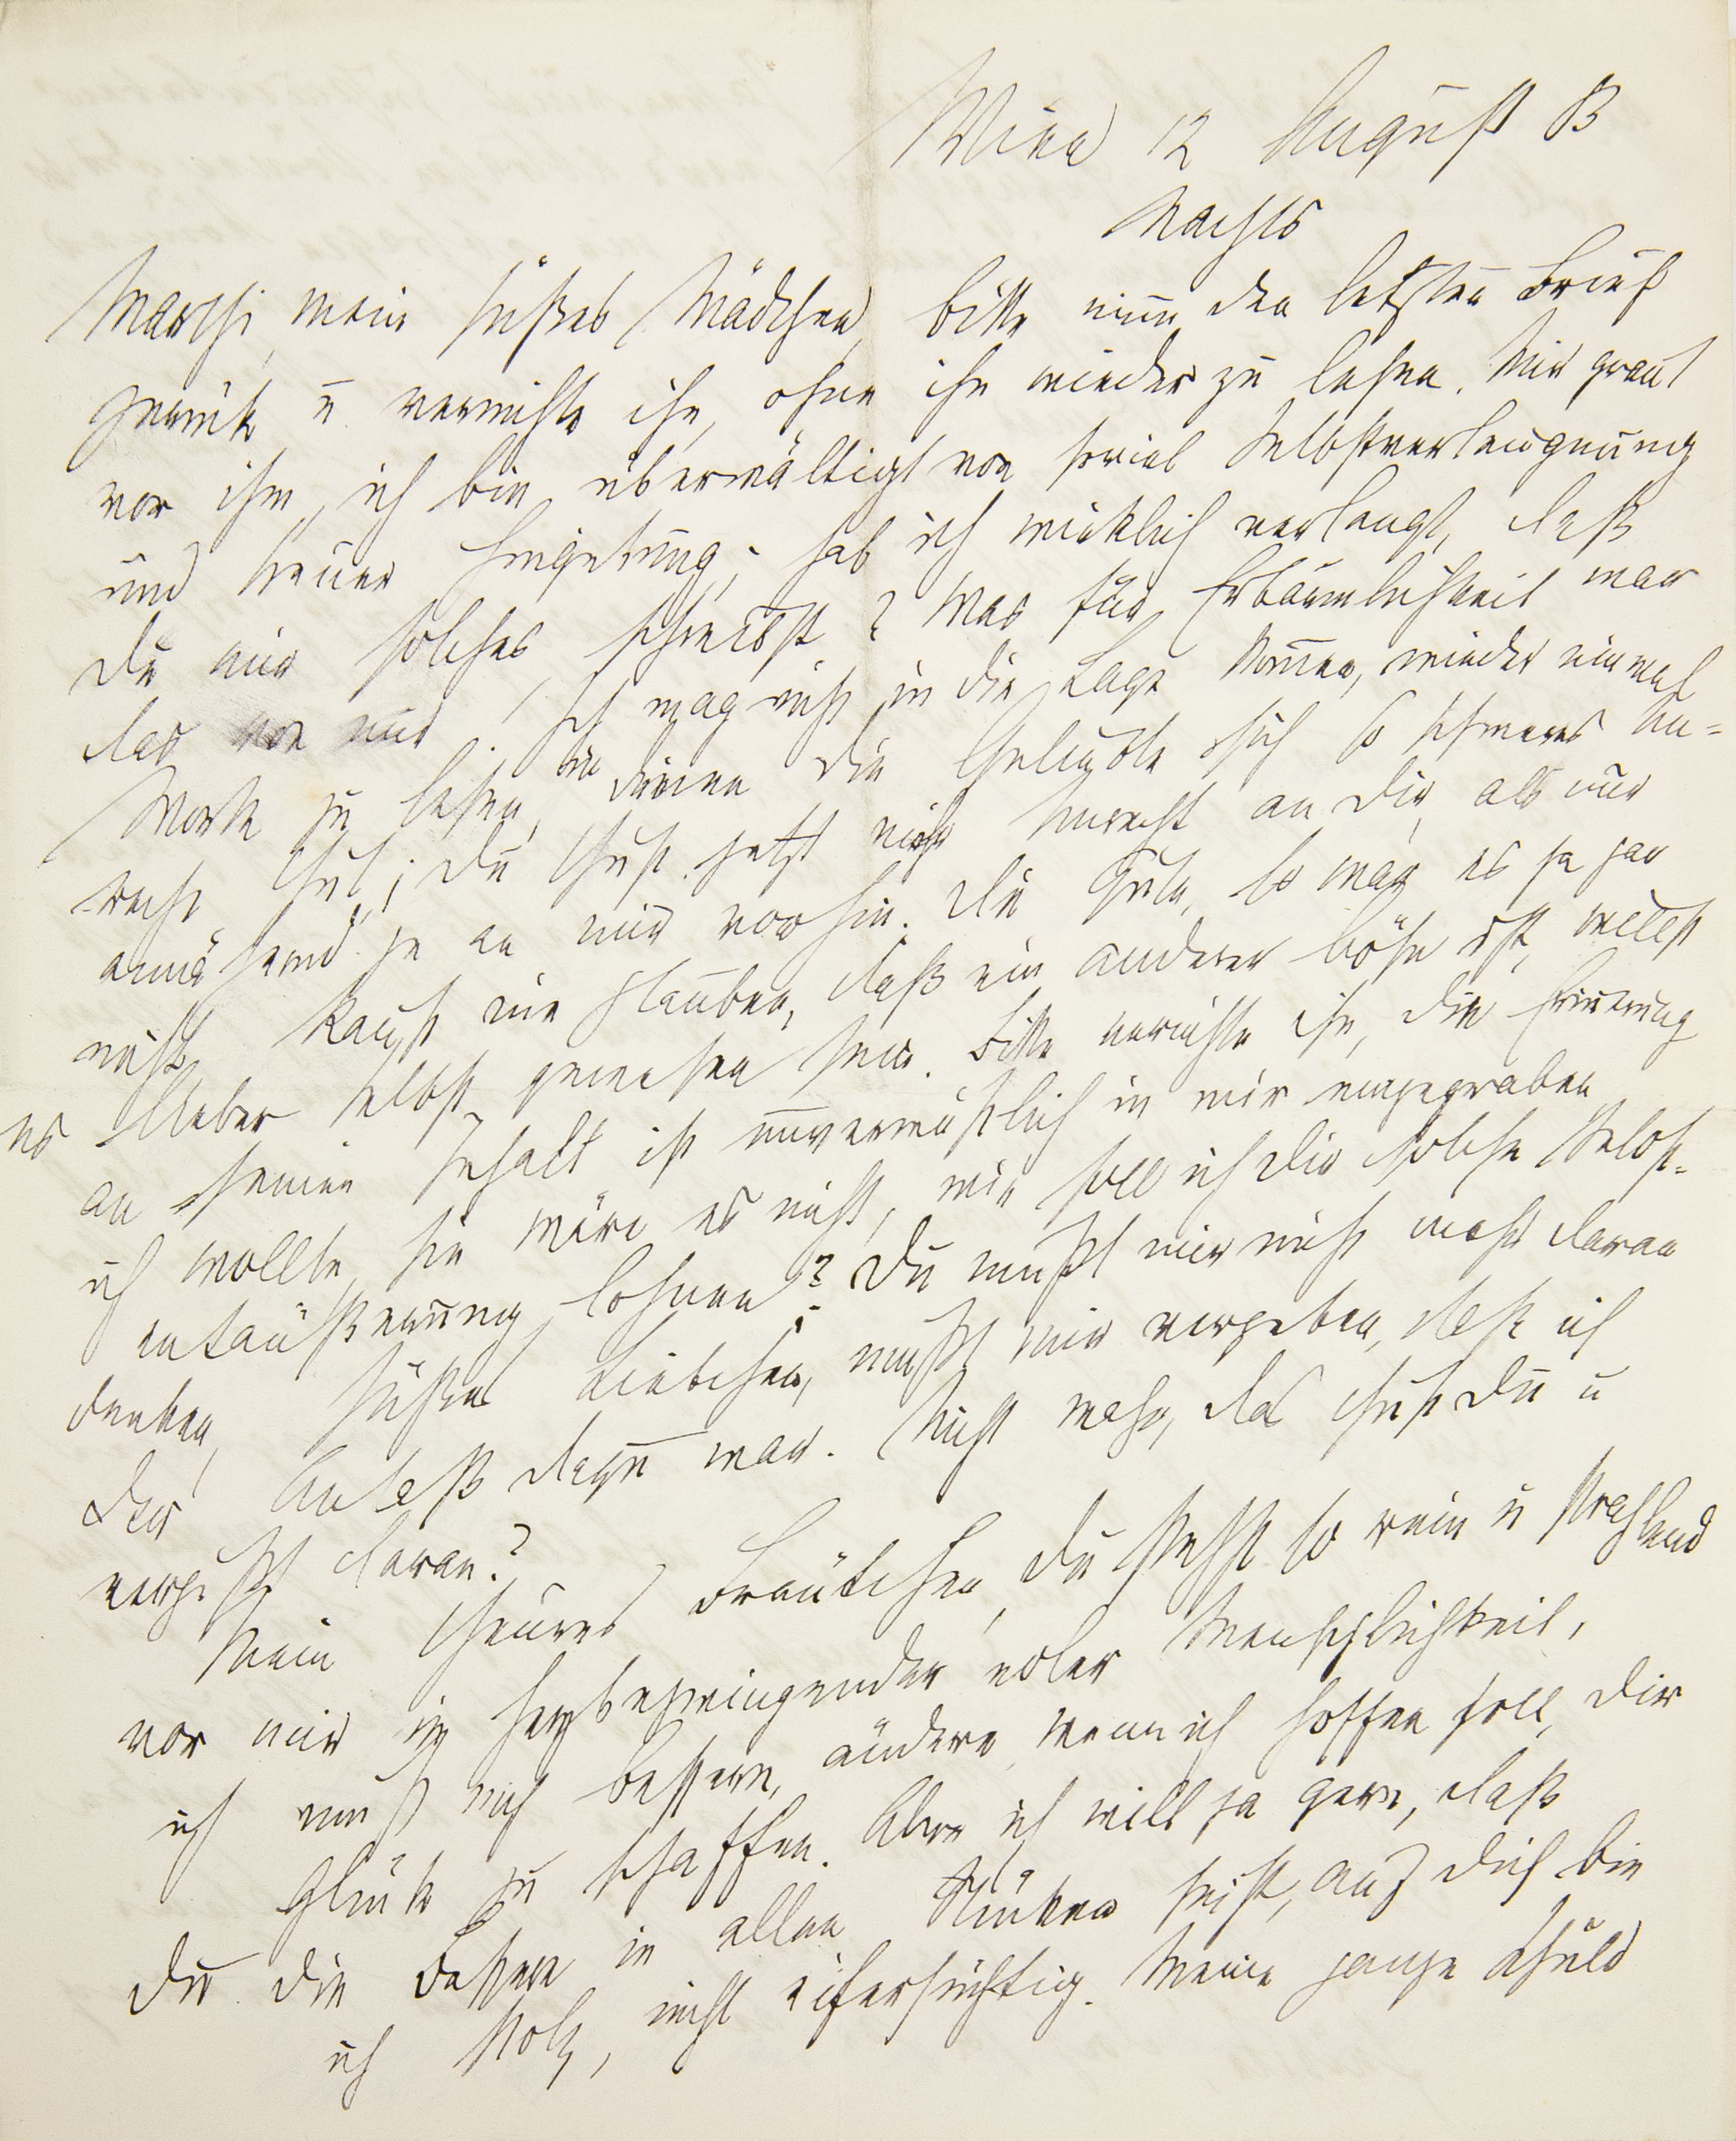 Wien 12 August 83
Nachts
Marthi, mein süßes Mädchen, bitte nim̄ den letzten Brief
zurück u vernichte ihn, ohne ihn wieder zu lesen. Mir graut
vor ihm, ich bin überwältigt von soviel Selbstverleugnung
und treuer Hingebung; hab ich wirklich verlangt, daß
Du mir solches schreibst? Was für Erbärmlichkeit war
das von mir! Ich mag nicht in die Lage kom̄en, wieder einmal
Worte zu lesen, in denen die Geliebte sich so schweres Un=
recht thut; Du thust jetzt mehr Unrecht an Dir, als nur
annähernd je an mir vorhin. Du Gute, so mag es ja gar
nicht, kan̄st nie glauben, daß ein anderer böse ist, willst
es lieber selbst gewesen sein. Bitte vernichte ihn, die Erin̄erung
an seinen Inhalt ist unverwüstlich in mir eingegraben
ich wollte, sie wäre es nicht, wie soll ich Dir solche Selbst-
entäußerung lohnen? Du mußt mir nicht mehr daran
denken, süßes Liebchen, mußt mir vergeben, daß ich
der Anlaß dazu war. Nicht wahr, das thust Du u
vergißt daran?
Mein theures Bräutchen, Du stehst so rein u strahlend
vor mir in herzbezwingender edler Menschlichkeit,
ich muß mich bessern, ändern, wenn ich hoffen soll, Dir
Glück zu schaffen. Aber ich will ja gern, daß
Du die Bessere in allen Stücken seist, auf Dich bin
ich stolz, nicht eifersüchtig. Meine ganze Schuld